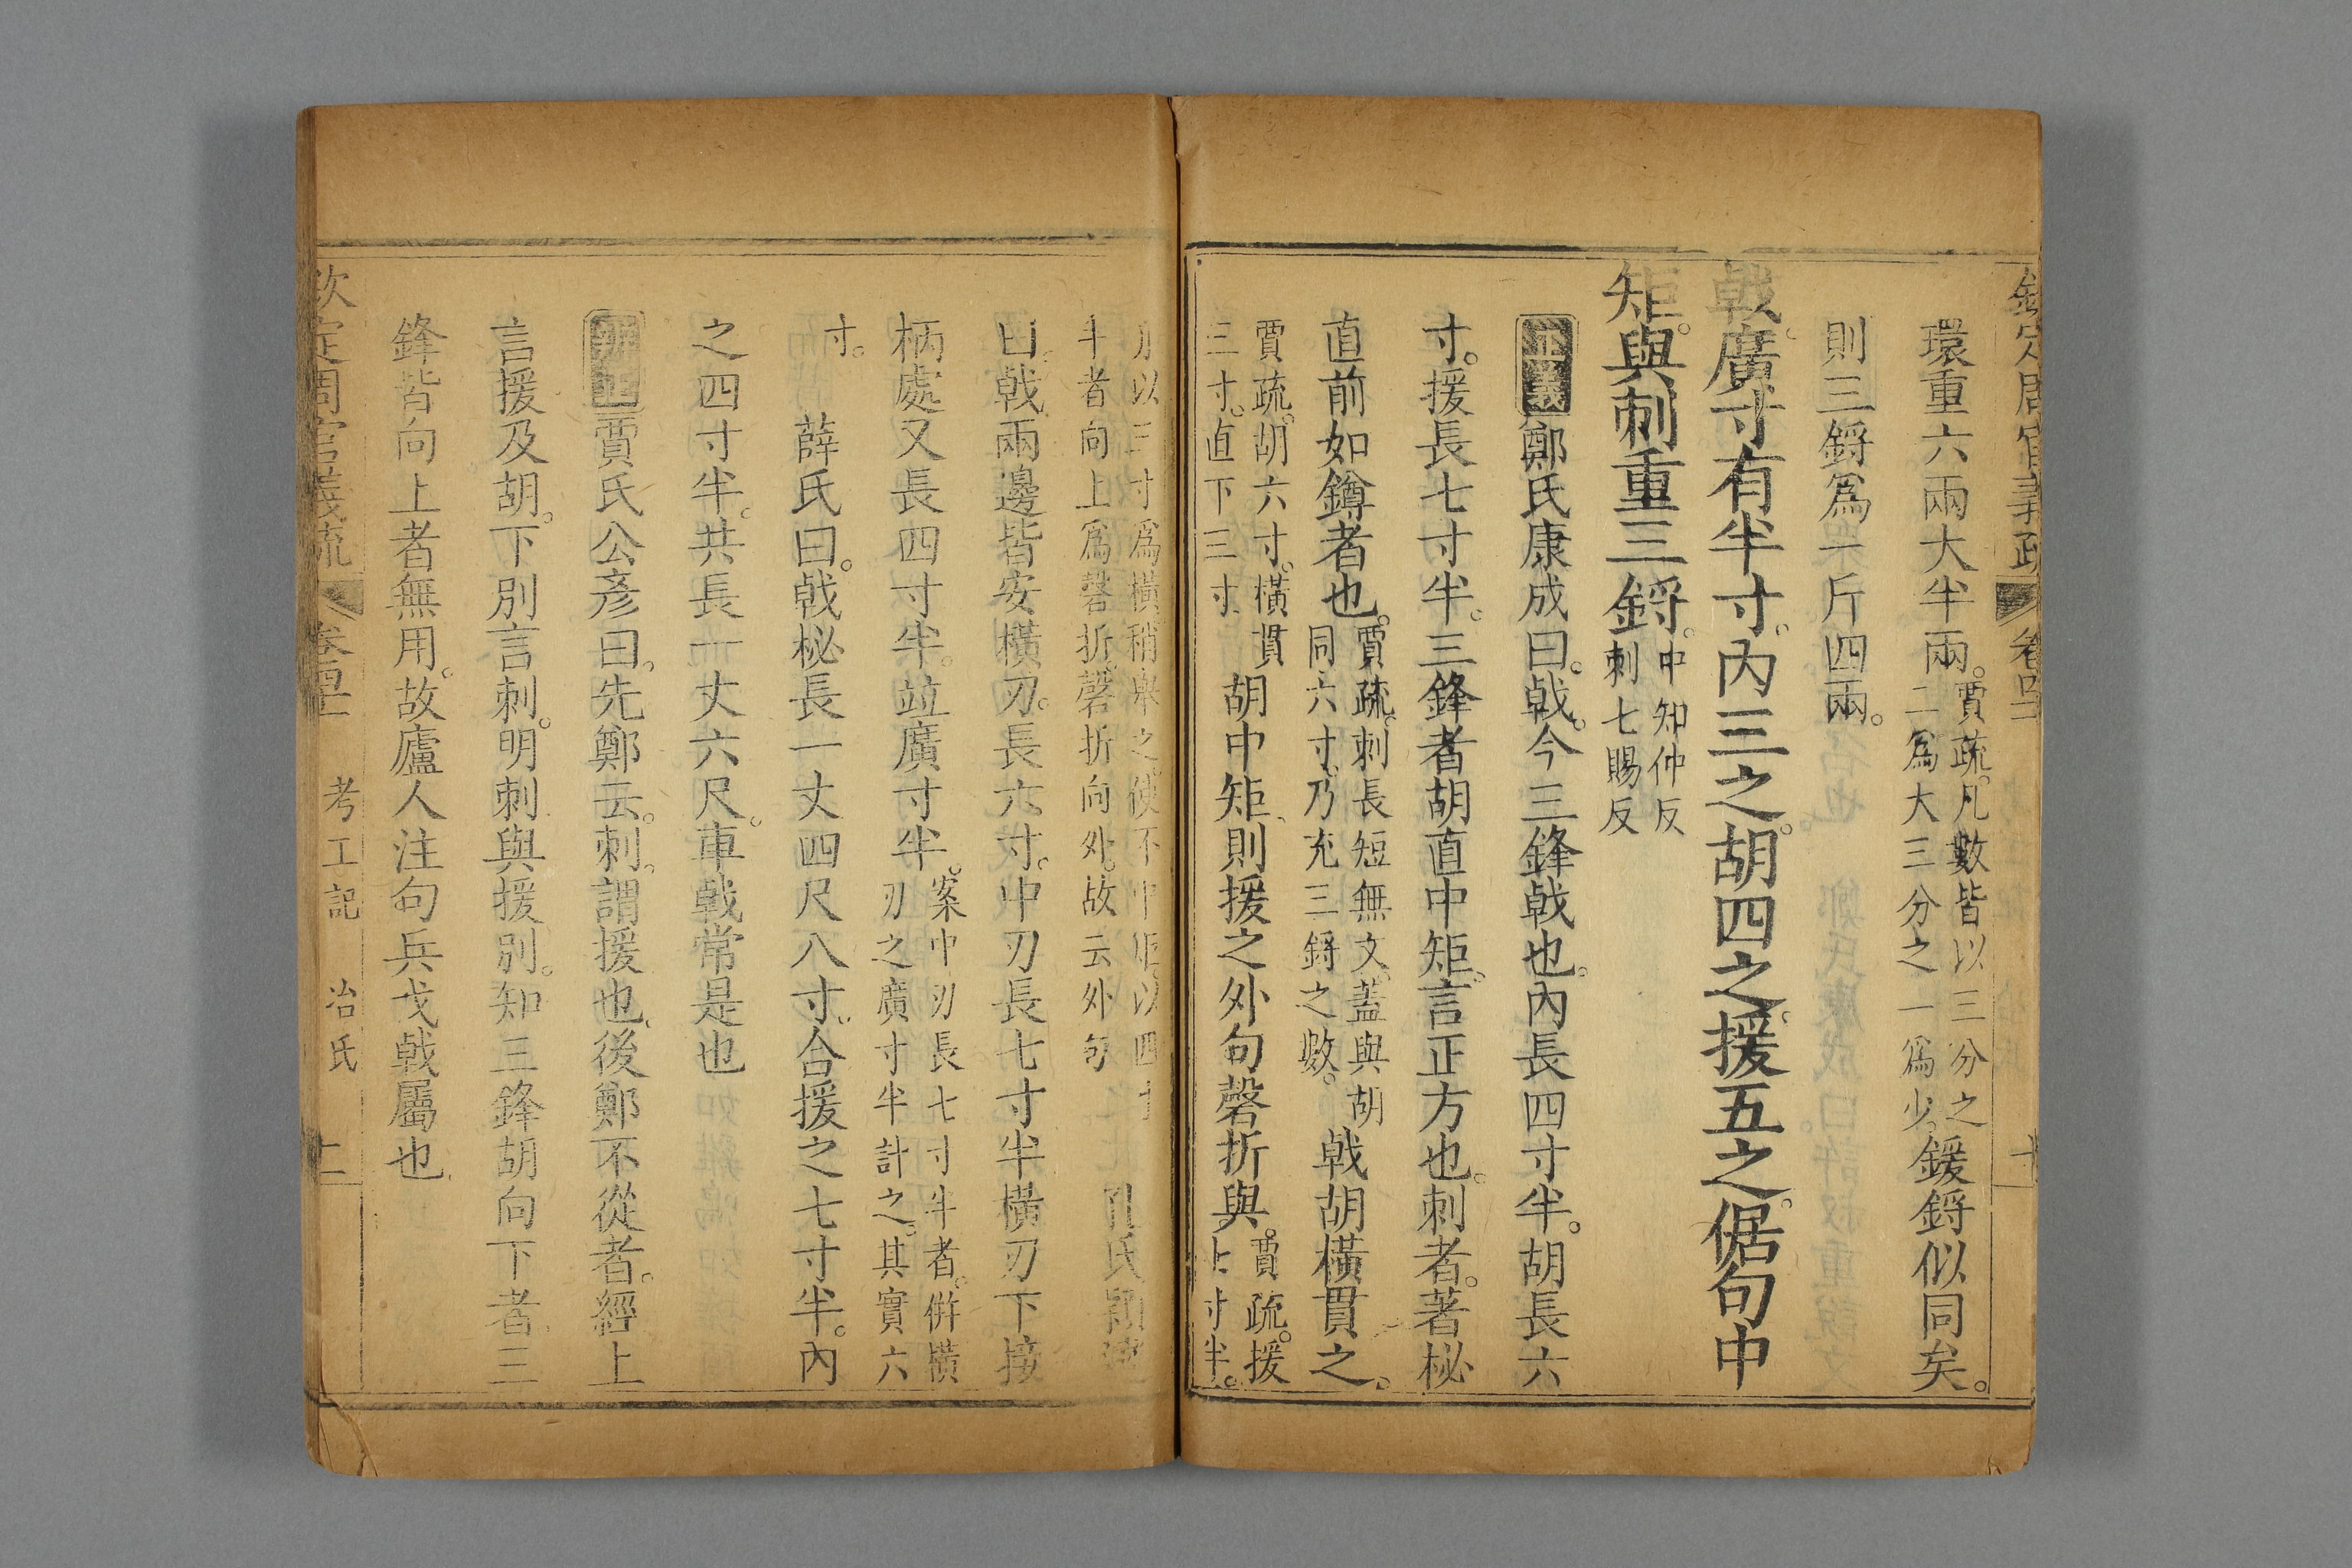 欽定周官義疏 卷四十二 十
環重六兩大半兩。賈疏。凡數皆以三分之二爲大三分之一爲少。鍰鋝似同矣。
則三鋝爲一斤四兩。
戟廣寸有半寸。內三之。胡四之。援五之。倨句中
矩。與刺重三鋝。中知仲反刺七賜反
正義鄭氏康成曰。戟。今三鋒戟也。內長四寸半。胡長六
寸。援長七寸半。三鋒者胡直中矩。言正方也。刺者。著柲
直前如鐏者也。賈疏。刺長短無文。蓋與胡同六寸。乃充三鋝之數。戟胡橫貫之。
賈疏。胡六寸。橫貫三寸。直下三寸。胡中矩。則援之外句磬折與。賈疏。援七寸半。
以三寸爲橫。稍舉之。使不中矩。以四寸半者向上爲磬折。磬折向外。故云外句 孔氏穎達
曰。戟。兩邊皆安橫刃。長六寸。中刃長七寸半橫刃下接
柄處又長四寸半。竝廣寸半。案中刃長七寸半者。併橫刃之廣寸半計之。其實六
寸。 薛氏曰。戟柲長一丈四尺八寸。合援之七寸半。內
之四寸半。共長一丈六尺。車戟常是也
賈氏公彥曰。先鄭云。刺。謂援也。後鄭不從者。經上
言援及胡。下別言刺。明刺與援別。知三鋒胡向下者三
鋒皆向上者無用。故廬人注句兵戈戟屬也
欽定周官義疏 卷四十二 考工記 冶氏 十一